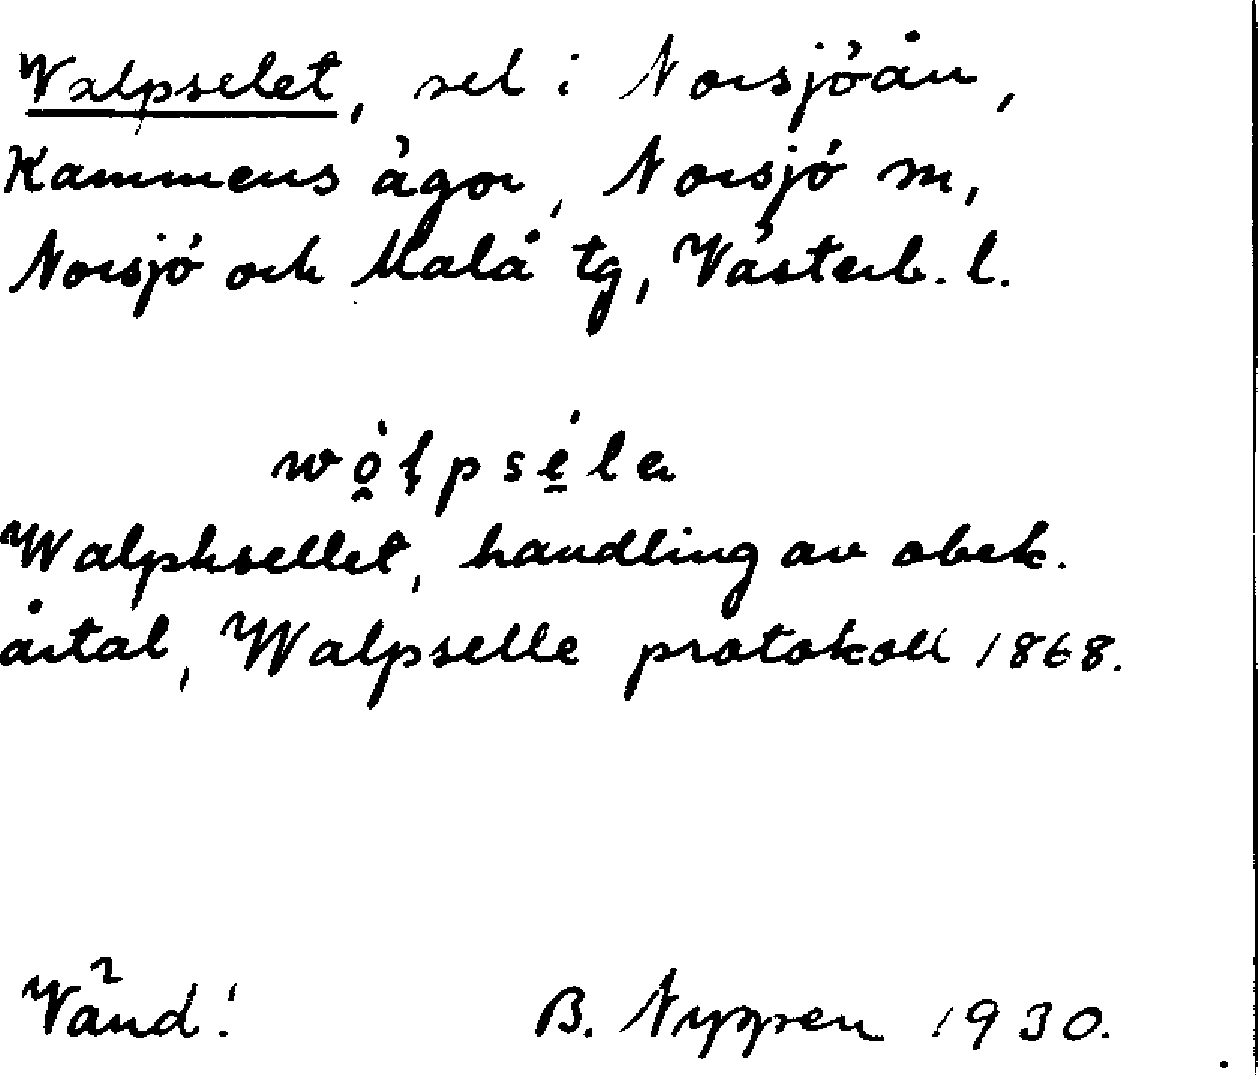 Walpselet, sel i Norsjöån,
Kammens ägor, Norsjö sn,
Norsjö och Malå tg, Västerb. l.
wò̯ḷpsé̱la
Walphsellet, handling av obek.
årtal, Walpselle protokoll 1868.
Vänd! B. Nyppen 1930.